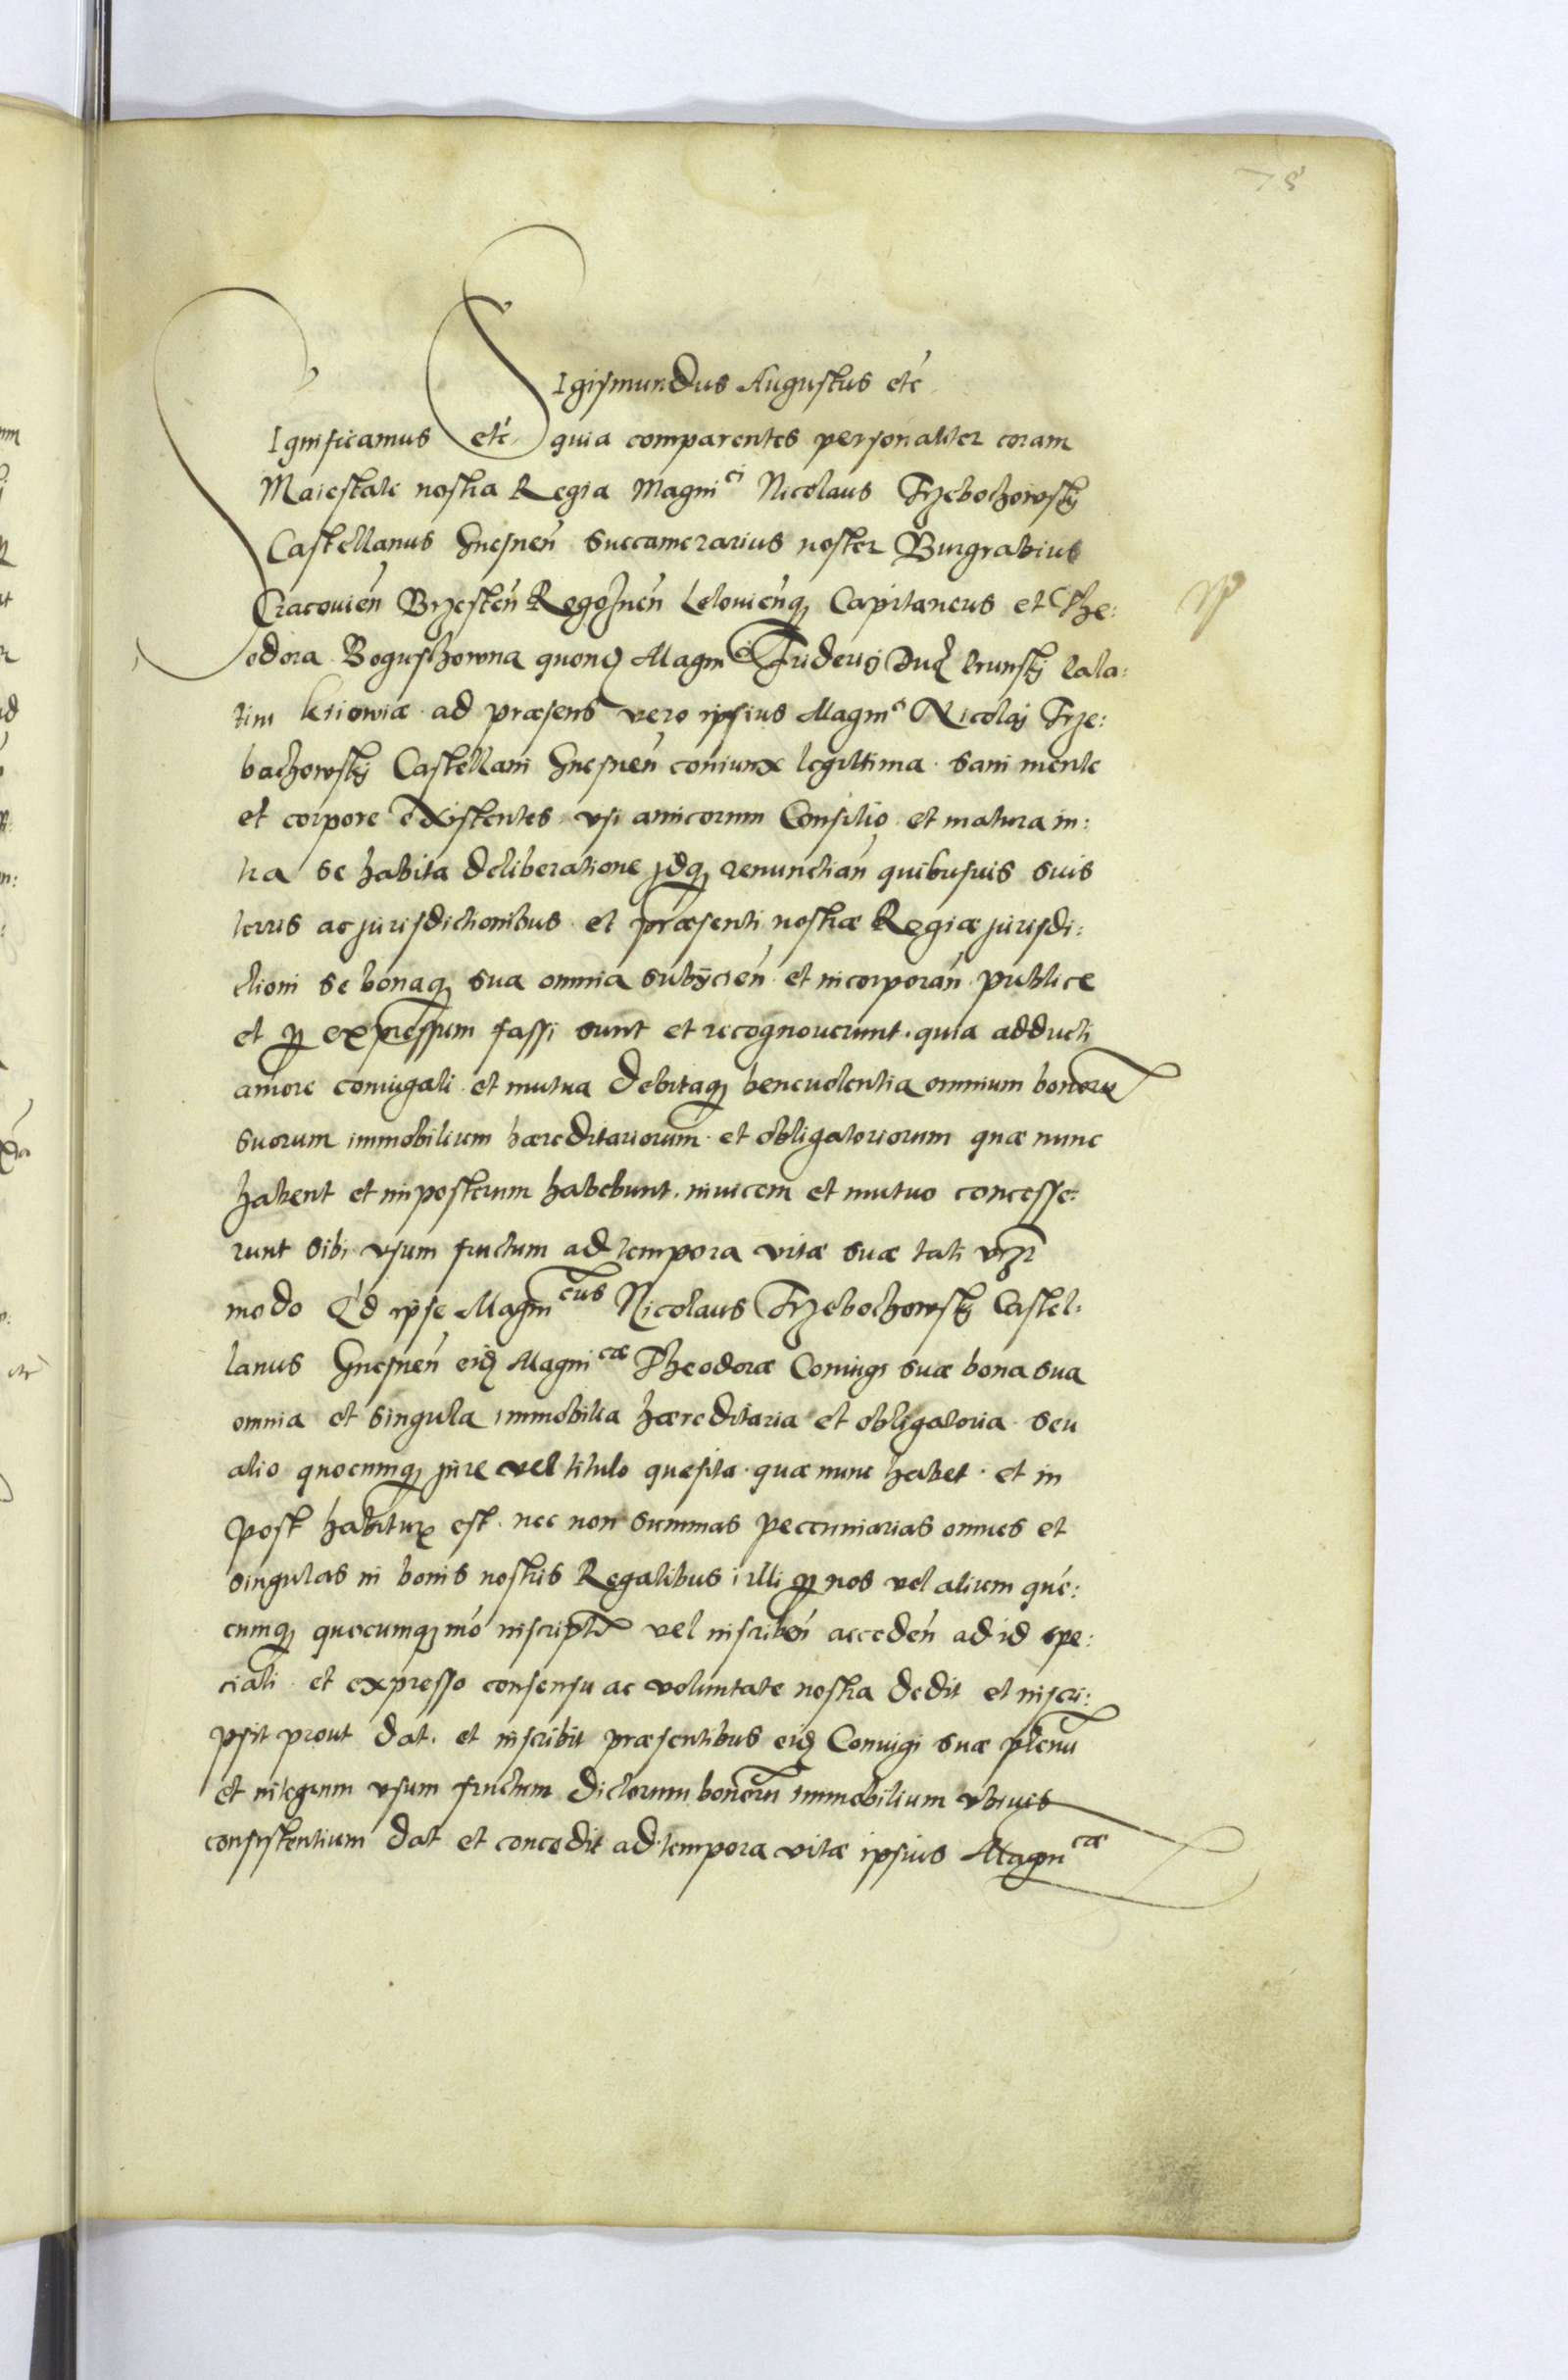 78
SIgismundus Augustus etc
SIgnificamus etc quia comparentes personaliter coram
Maiestate nostra Regia Magni^ci Nicolaus Trzebochowskÿ
Castellanus Gnesnen̄ succamerarius noster Burgrabius
Cracovień Brzesteń Rogoźneń Lelovienq3 Capitaneus et The:
odora Boguschowna quond Magn^ci Friderici Duc̨ Prunskÿ Pala:
tini kiiowiæ ad præsens vero ipsius Magn^ci Nicolaÿ Trze:
bachowskÿ Castellani Gnesneń coniunx legittima. sani mente
et corpore existentes. vsi amicorum Consilio et matura in:
tra se habita deliberatione jdq3 renunctiań quibusuis suis
terris ac jurisdictionibus. et præsenti nostræ Regiæ jurisdi:
ctioni se bonaq3 sua omnia subÿcień et incorporań. publice
et ꝑ expressum fassi sunt et recognouerunt. quia adducti
amore coniugali et mutua debitaq3 beneuolentia omnium bonorꝝ
suorum immobilium hæreditariorum. et obligatoriorum quæ nunc
habent et imposterum habebunt. inuicem et mutuo concesse:
runt sibi vsum fructum ad tempora vitæ suæ tali vrz
modo Q'd ipse Magni^cus Nicolaus Trzebochowskÿ Castel:
lanus Gnesneń eid Magni^cæ Theodoræ Coniugi suæ bona sua
omnia et singula immobilia hæreditaria et obligatoria. seu
alio quocumq3 jure vel titulo quesita. quæ nunc habet. et in
post habiturꝰ est. nec non summas pecuniarias omnes et
singulas in bonis nostris Regalibus illi ꝑ nos vel alium que:
cumq3 quocumq3 mó inscript̃ vel inscribeń accedeń ad id spe:
ciali et expresso consensu ac voluntate nostra dedit et inscri:
psit prout dat. et inscribit præsentibus eid Coniugi suæ plenū
et integrum vsum fructum dictorum bonorū immobilium vbiuis
consistentium dat et concedit ad tempora vitæ ipsius Magn^cæ